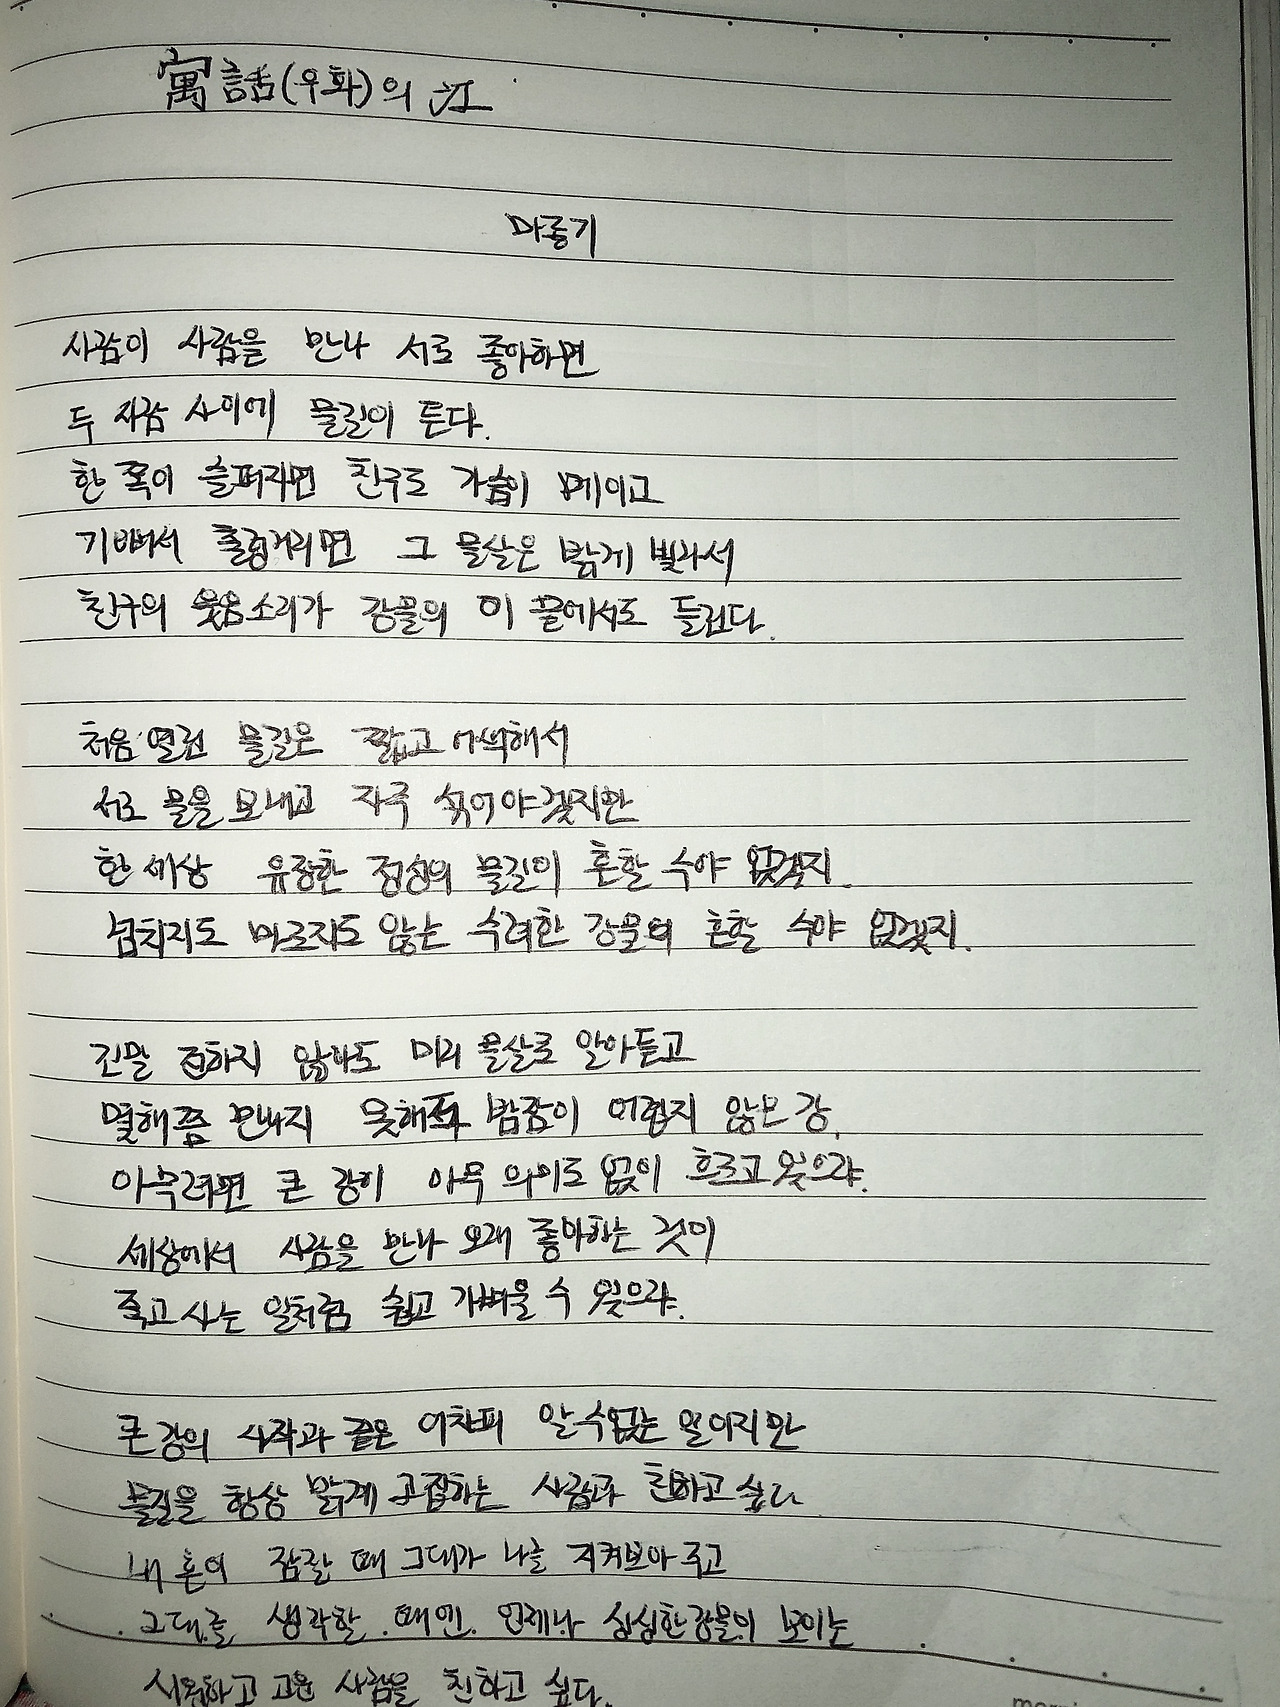 寓話(우화)의 江
마종기
사람이 사람을 만나 서로 좋아하면
두 사람 사이에 물길이 튼다.
한 쪽이 슬퍼지면 친구도 가슴이 메이고
기뻐서 출렁거리면 그 물살은 밝게 빛나서
친구의 웃음소리가 강물의 이 끝에서도 들린다.
처음 열린 물길은 짧고 어색해서
서로 물을 보내고 자주 섞어야겠지만
한 세상 유장한 정성의 물길이 흔할 수야 없겠지.
넘치지도 마르지도 않는 수려한 강물이 흔할 수야 없겠지.
긴말 전하지 않아도 미리 물살로 알아듣고
몇해쯤 만나지 못해도 밤잠이 어렵지 않은 강,
아무려면 큰 강이 아무 의미도 없이 흐르고 있으랴.
세상에서 사람을 만나 오래 좋아하는 것이
죽고 사는 일처럼 쉽고 가벼울 수 있으랴.
큰 강의 시작과 끝은 어차피 알 수 없는 일이지만
물길을 항상 맑게 고집하는 사람과 친하고 싶다
내 혼이 잠잘 때 그대가 나를 지켜보아 주고
그대를 생각할 때엔 언제나 싱싱한 강물이 보이는
시원하고 고운 사람을 친하고 싶다.